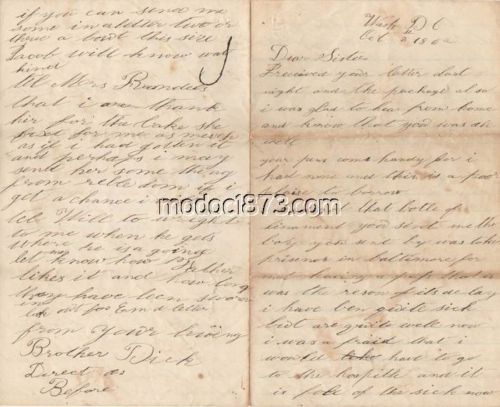 Wash D C
Oct 2 186
Dear Sister
I recieved your letter last
night and the package also
i was glad to hear from home
and know that you was all
well
your pens come handy for i
had none and this is a poor
place to borrow
that botle of
linament you sent me the
boy you sent by was taken
prisoner in baltimore for
not having a pass that
was the reson of its delay
i have ben quite sick
but are quite well now
i was a fraid that i
would have to go
to the hospitle and it
is full of the sick now
if you can send me
some in a letter two or
three a bout this size
Jacob will know what
kind
tel Mrs
that i am thank
her for the cake she
sent for me as much
as if i had gotten it
and perhaps i may
send her some thing
from reble dom if i
get a chance
tel Will to wright
to me when he gets
where he is a going
let know how
likes it and how long
they have been sworn
in
for Em d letter
from your loveing
Brother Dick
Direct as
Before
modoc1873.com